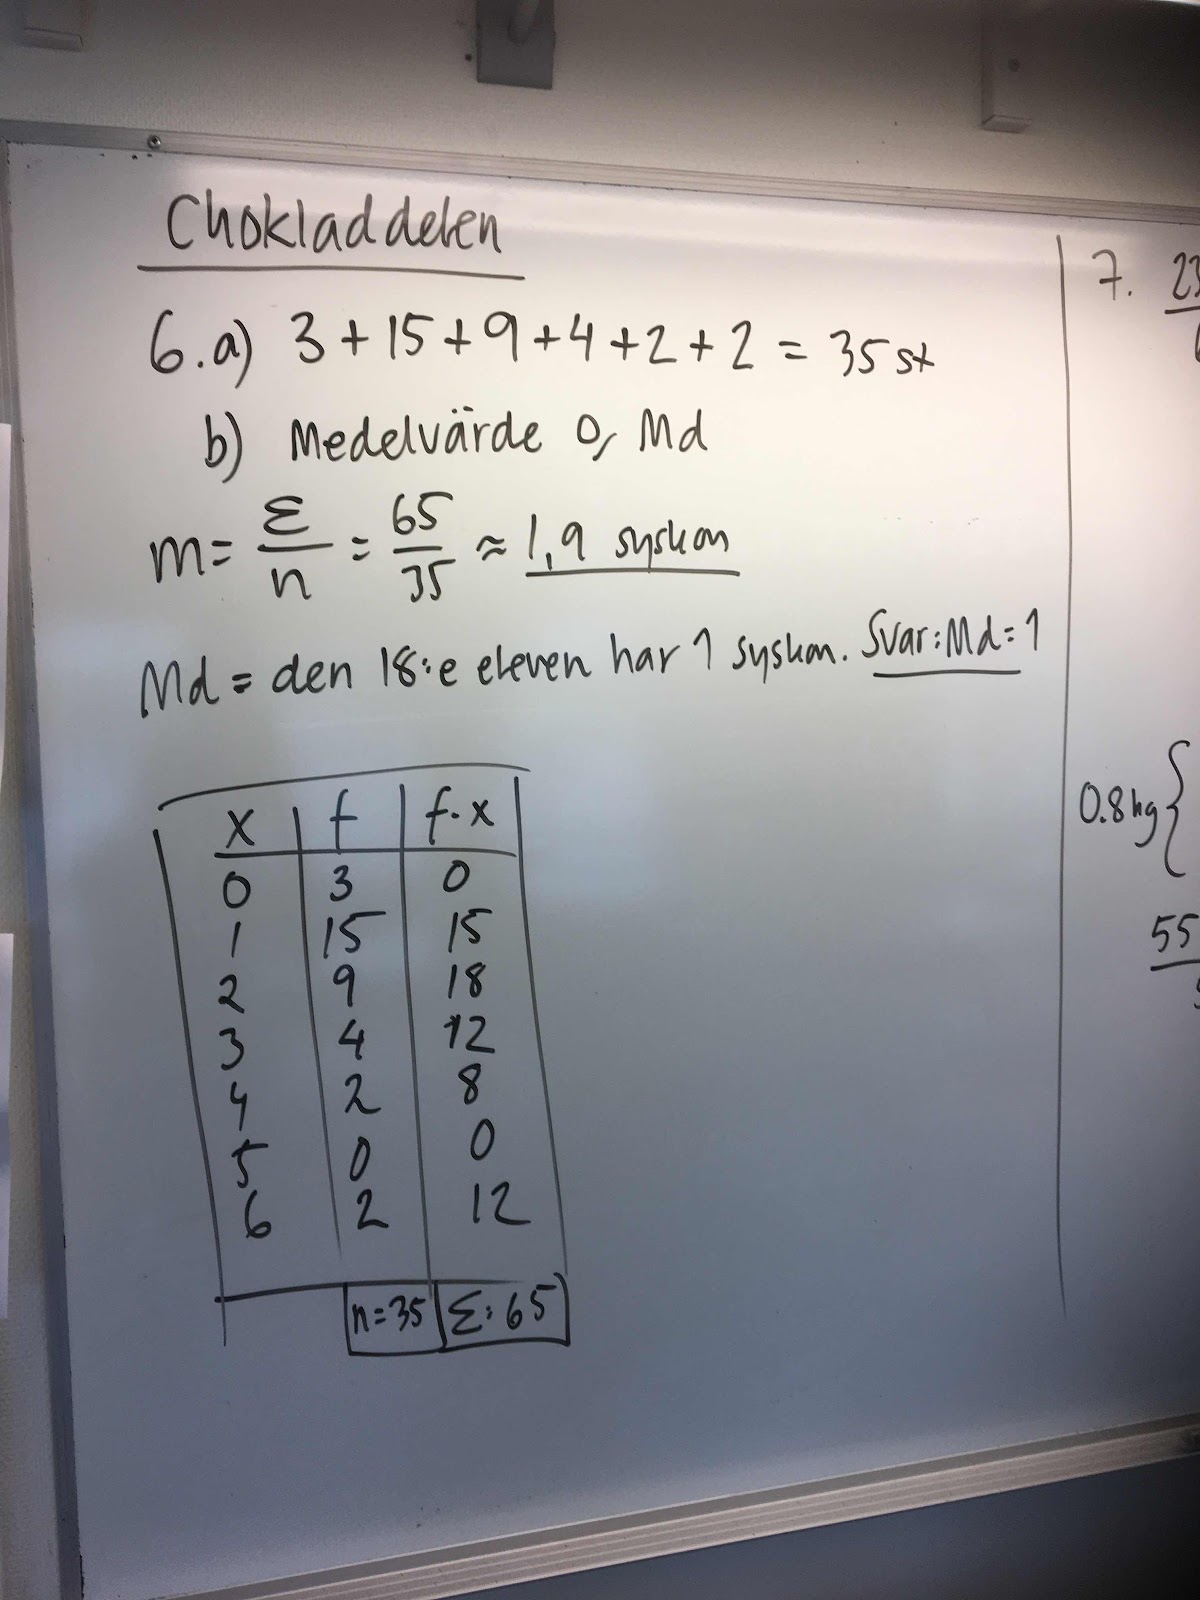 Chokladdelen
6.a) 3+15+9+4+2+2 = 35 st
b) Medelvärde o, Md
m = Σ/n = 65/35 ≈ 1,9 syskon
Md = den 18:e eleven har 1 syskon. Svar: Md = 1
x f f·x
0 3 0
1 15 15
2 9 18
3 4 12
4 2 8
5 0 0
6 2 12
n=35 Σ: 65
7. 23
0.8 hg {
55